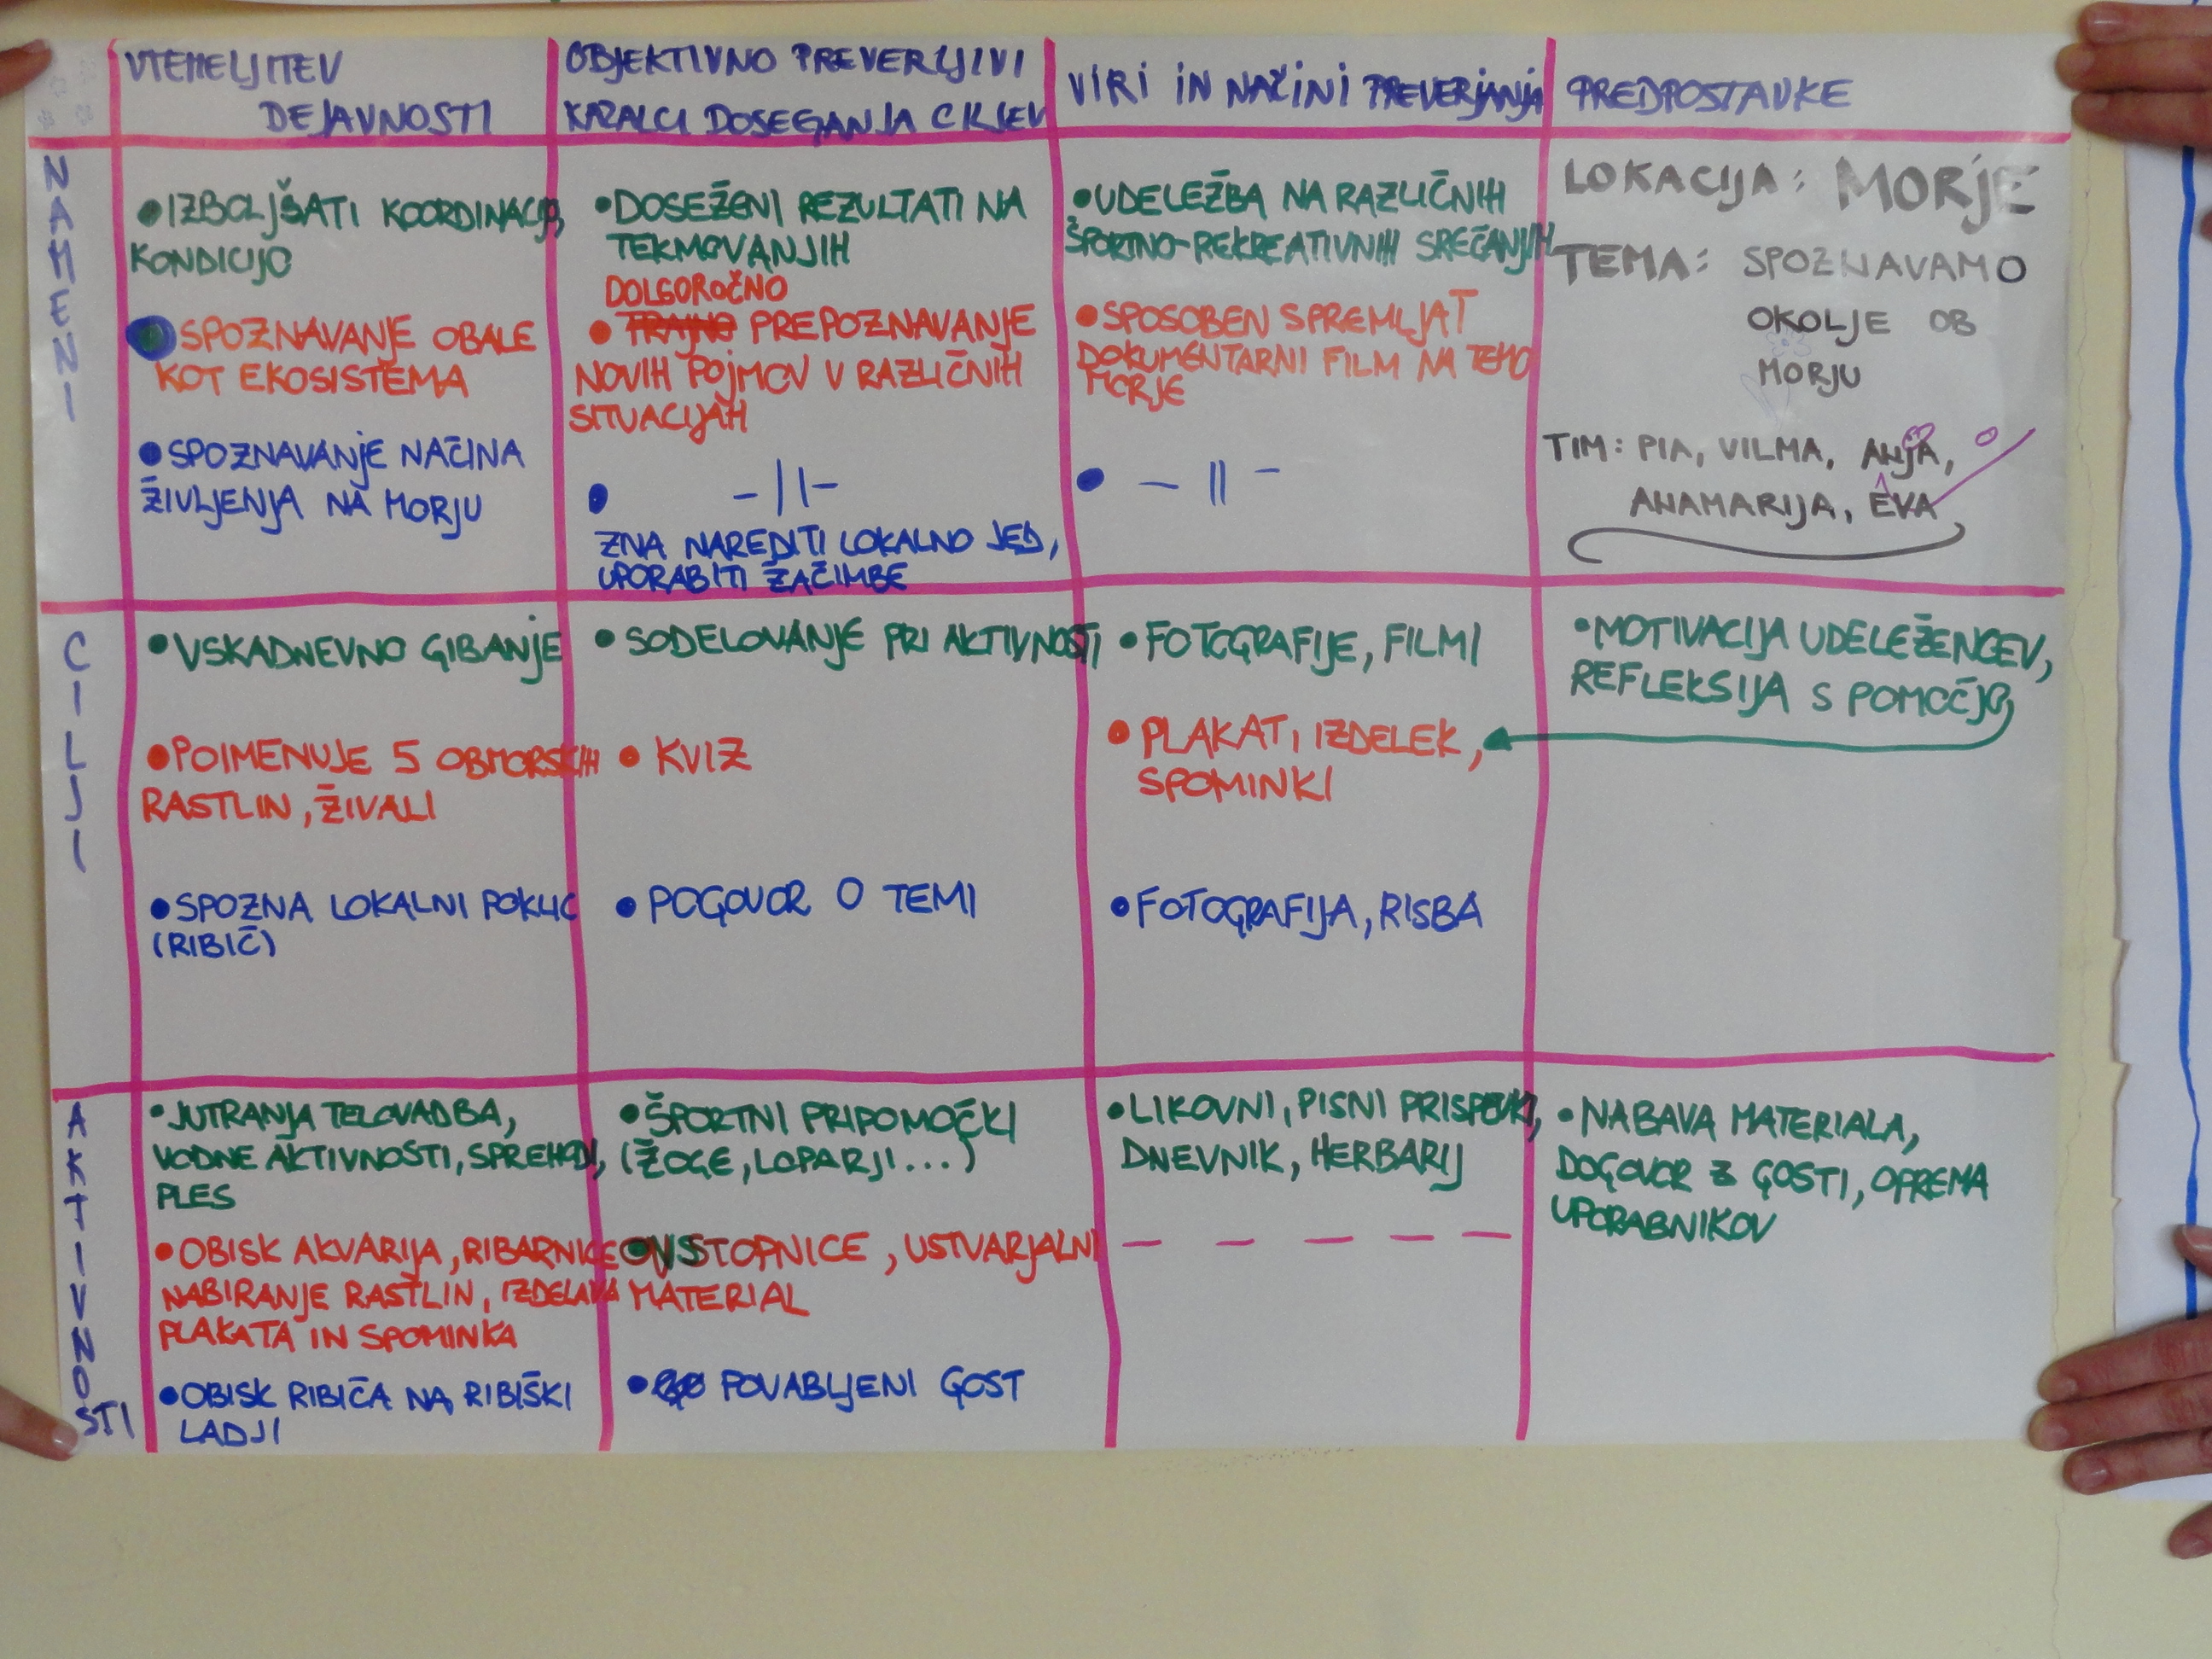 UTEMELJITEV
DEJAVNOSTI
OBJEKTIVNO PREVERLJIVI
KAZALCI DOSEGANJA CILJEV
VIRI IN NAČINI PREVERJANJA
PREDPOSTAVKE
NAMENI
•IZBOLJŠATI KOORDINACIJO,
KONDICIJO
•SPOZNAVANJE OBALE
KOT EKOSISTEMA
•SPOZNAVANJE NAČINA
ŽIVLJENJA NA MORJU
•DOSEŽENI REZULTATI NA
TEKMOVANJIH
DOLGOROČNO
• TRAJNO PREPOZNAVANJE
NOVIH POJMOV V RAZLIČNIH
SITUACIJAH
• -||-
ZNA NAREDITI LOKALNO JED,
UPORABITI ZAČIMBE
•UDELEŽBA NA RAZLIČNIH
ŠPORTNO-REKREATIVNIH SREČANJIH
•SPOSOBEN SPREMLJAT
DOKUMENTARNI FILM NA TEMO
MORJE
• -||-
LOKACIJA: MORJE
TEMA: SPOZNAVAMO
OKOLJE OB
MORJU
TIM: PIA, VILMA, ANJA,
ANAMARIJA, EVA
CILJI
•VSKADNEVNO GIBANJE
•POIMENUJE 5 OBMORSKIH
RASTLIN, ŽIVALI
•SPOZNA LOKALNI POKLIC
(RIBIČ)
•SODELOVANJE PRI AKTIVNOSTI
•KVIZ
•POGOVOR O TEMI
•FOTOGRAFIJE, FILMI
•PLAKAT, IZDELEK,
SPOMINKI
•FOTOGRAFIJA, RISBA
•MOTIVACIJA UDELEŽENCEV,
REFLEKSIJA S POMOČJO
AKTIVNOSTI
•JUTRANJA TELOVADBA,
VODNE AKTIVNOSTI, SPREHODI,
PLES
•OBISK AKVARIJA, RIBARNICE
NABIRANJE RASTLIN, IZDELAVA
PLAKATA IN SPOMINKA
•OBISK RIBIČA NA RIBIŠKI
LADJI
•ŠPORTNI PRIPOMOČKI
(ŽOGE, LOPARJI...)
•VSTOPNICE, USTVARJALNI
MATERIAL
• POVABLJENI GOST
•LIKOVNI, PISNI PRISPEVKI,
DNEVNIK, HERBARIJ
— — — — —
•NABAVA MATERIALA,
DOGOVOR Z GOSTI, OPREMA
UPORABNIKOV